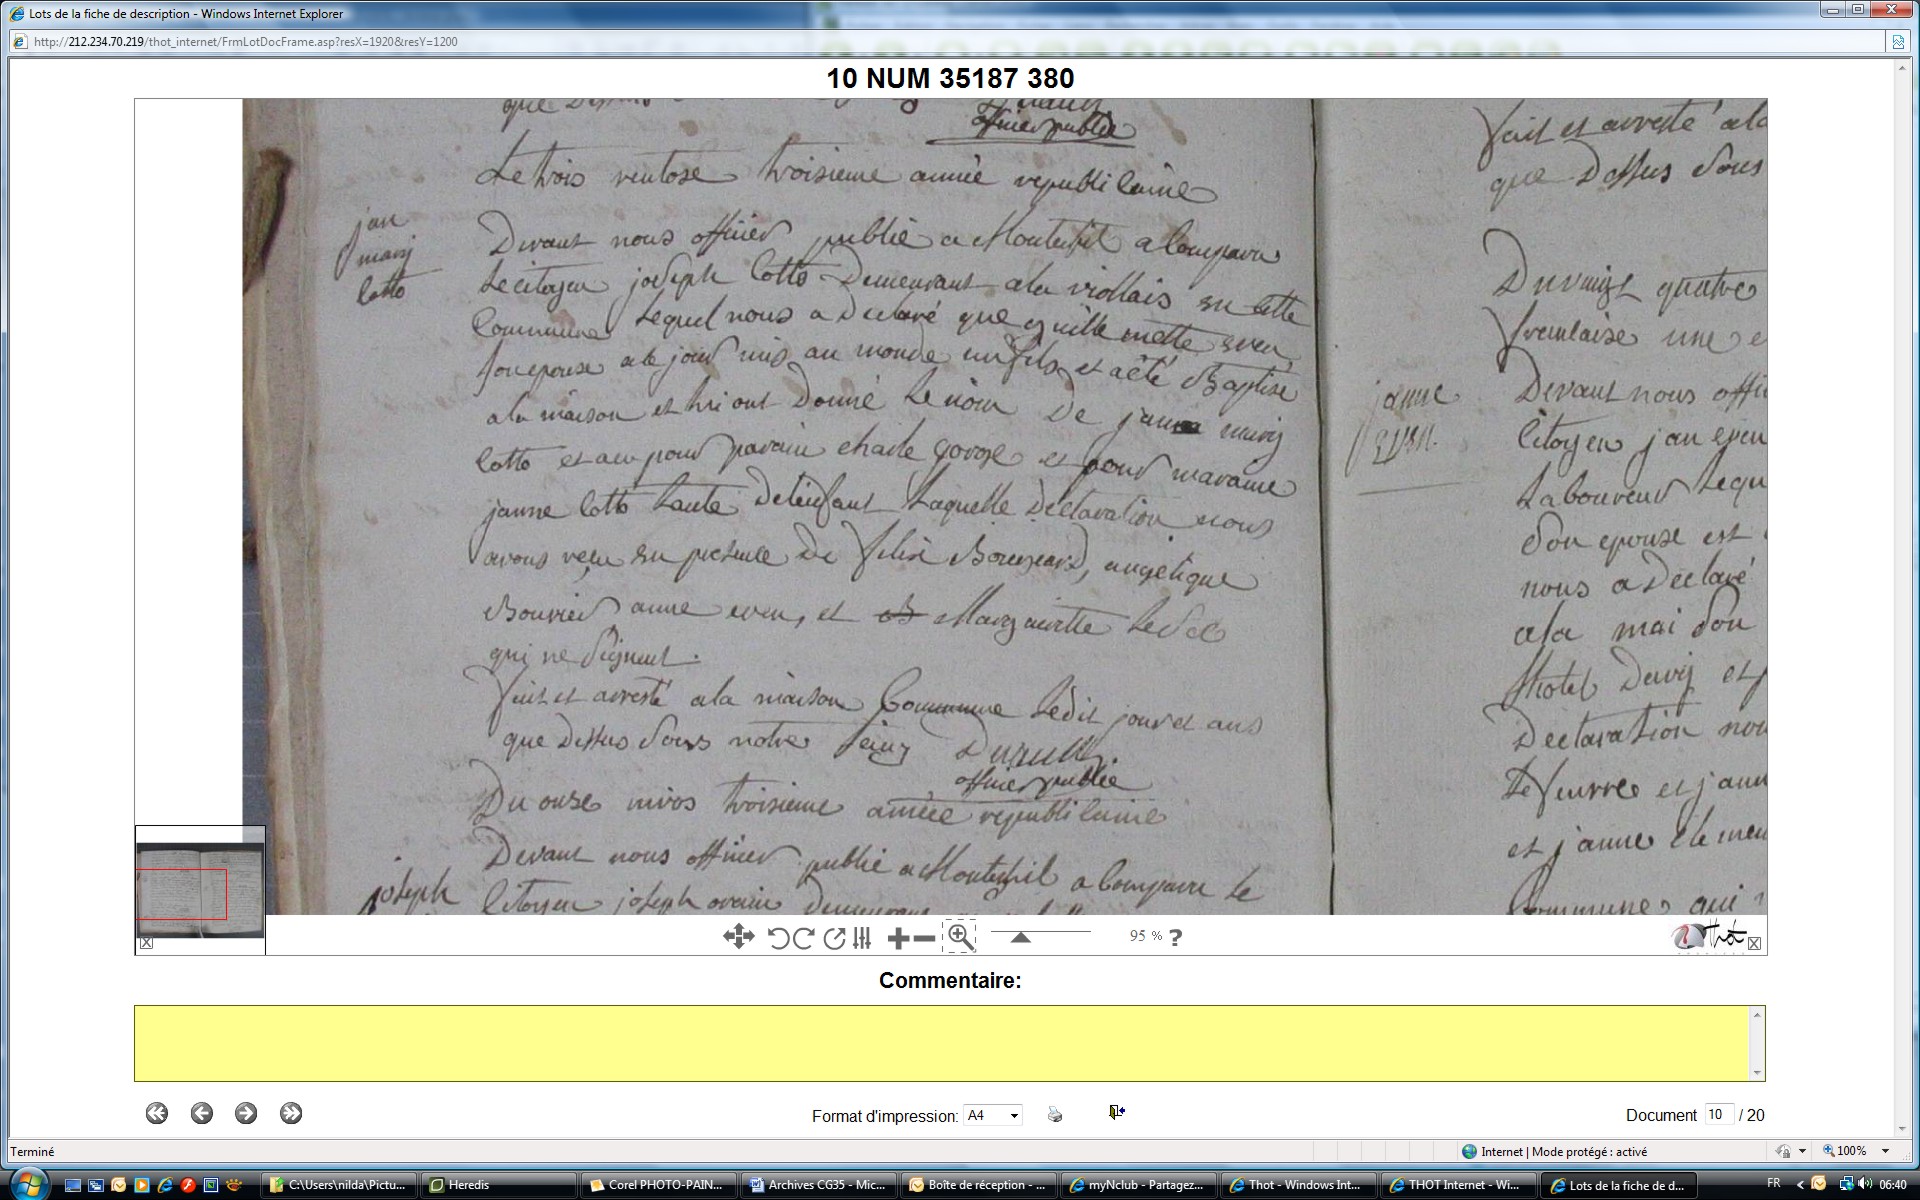 Lots de la fiche de description - Windows Internet Explorer
http://212.234.70.219/thot_internet/FrmLotDocFrame.asp?resX=1920&resY=1200
10 NUM 35187 380
que dessus
officier publié
Le trois ventose troisieme année republicaine
jan
marij
lotto
Devant nous officier publié a Monterfil a Comparu
Le citoyen joseph lotto Demeurant ala viollais en cette
Commune Lequel nous a Declaré que
son epouse a le jour mis au monde un fils et a été Baptise
ala maison et lui ont Donné Le nom De jan marij
lotto et a eu pour parain charle gorge et pour maraine
janne lotto tante De lenfant Laquelle Declaration nous
avons reçu en presence De felix angelique
Bouvier anne even, et Margueritte
qui ne Signent.
fait et arresté ala maison Commune Ledit jour et ans
que Dessus Sous notre Seing
officier publié
Du onze nivos troisieme année republicaine
Devant nous officier publié a Monterfil a Comparu Le
joseph
Citoyen joseph Demeurant
fait et arresté ala
que Dessus Sous
Du vingt quatre
une
janne
Devant nous offi
Citoyen jan even
Laboureur Lequ
Son epouse est
nous a Declaré
ala mai Son
et
Declaration nou
et jann
et janne
Commune qui
95 %
?
Thot
Commentaire:
Format d'impression: A4
Document 10 / 20
Terminé
Internet | Mode protégé : activé
100%
C:\Users\nilda\Pictu...
Heredis
Corel PHOTO-PAIN...
Archives CG35 - Mic...
Boîte de réception - ...
myNclub - Partagez...
Thot - Windows Int...
THOT Internet - Wi...
Lots de la fiche de d...
FR
06:40